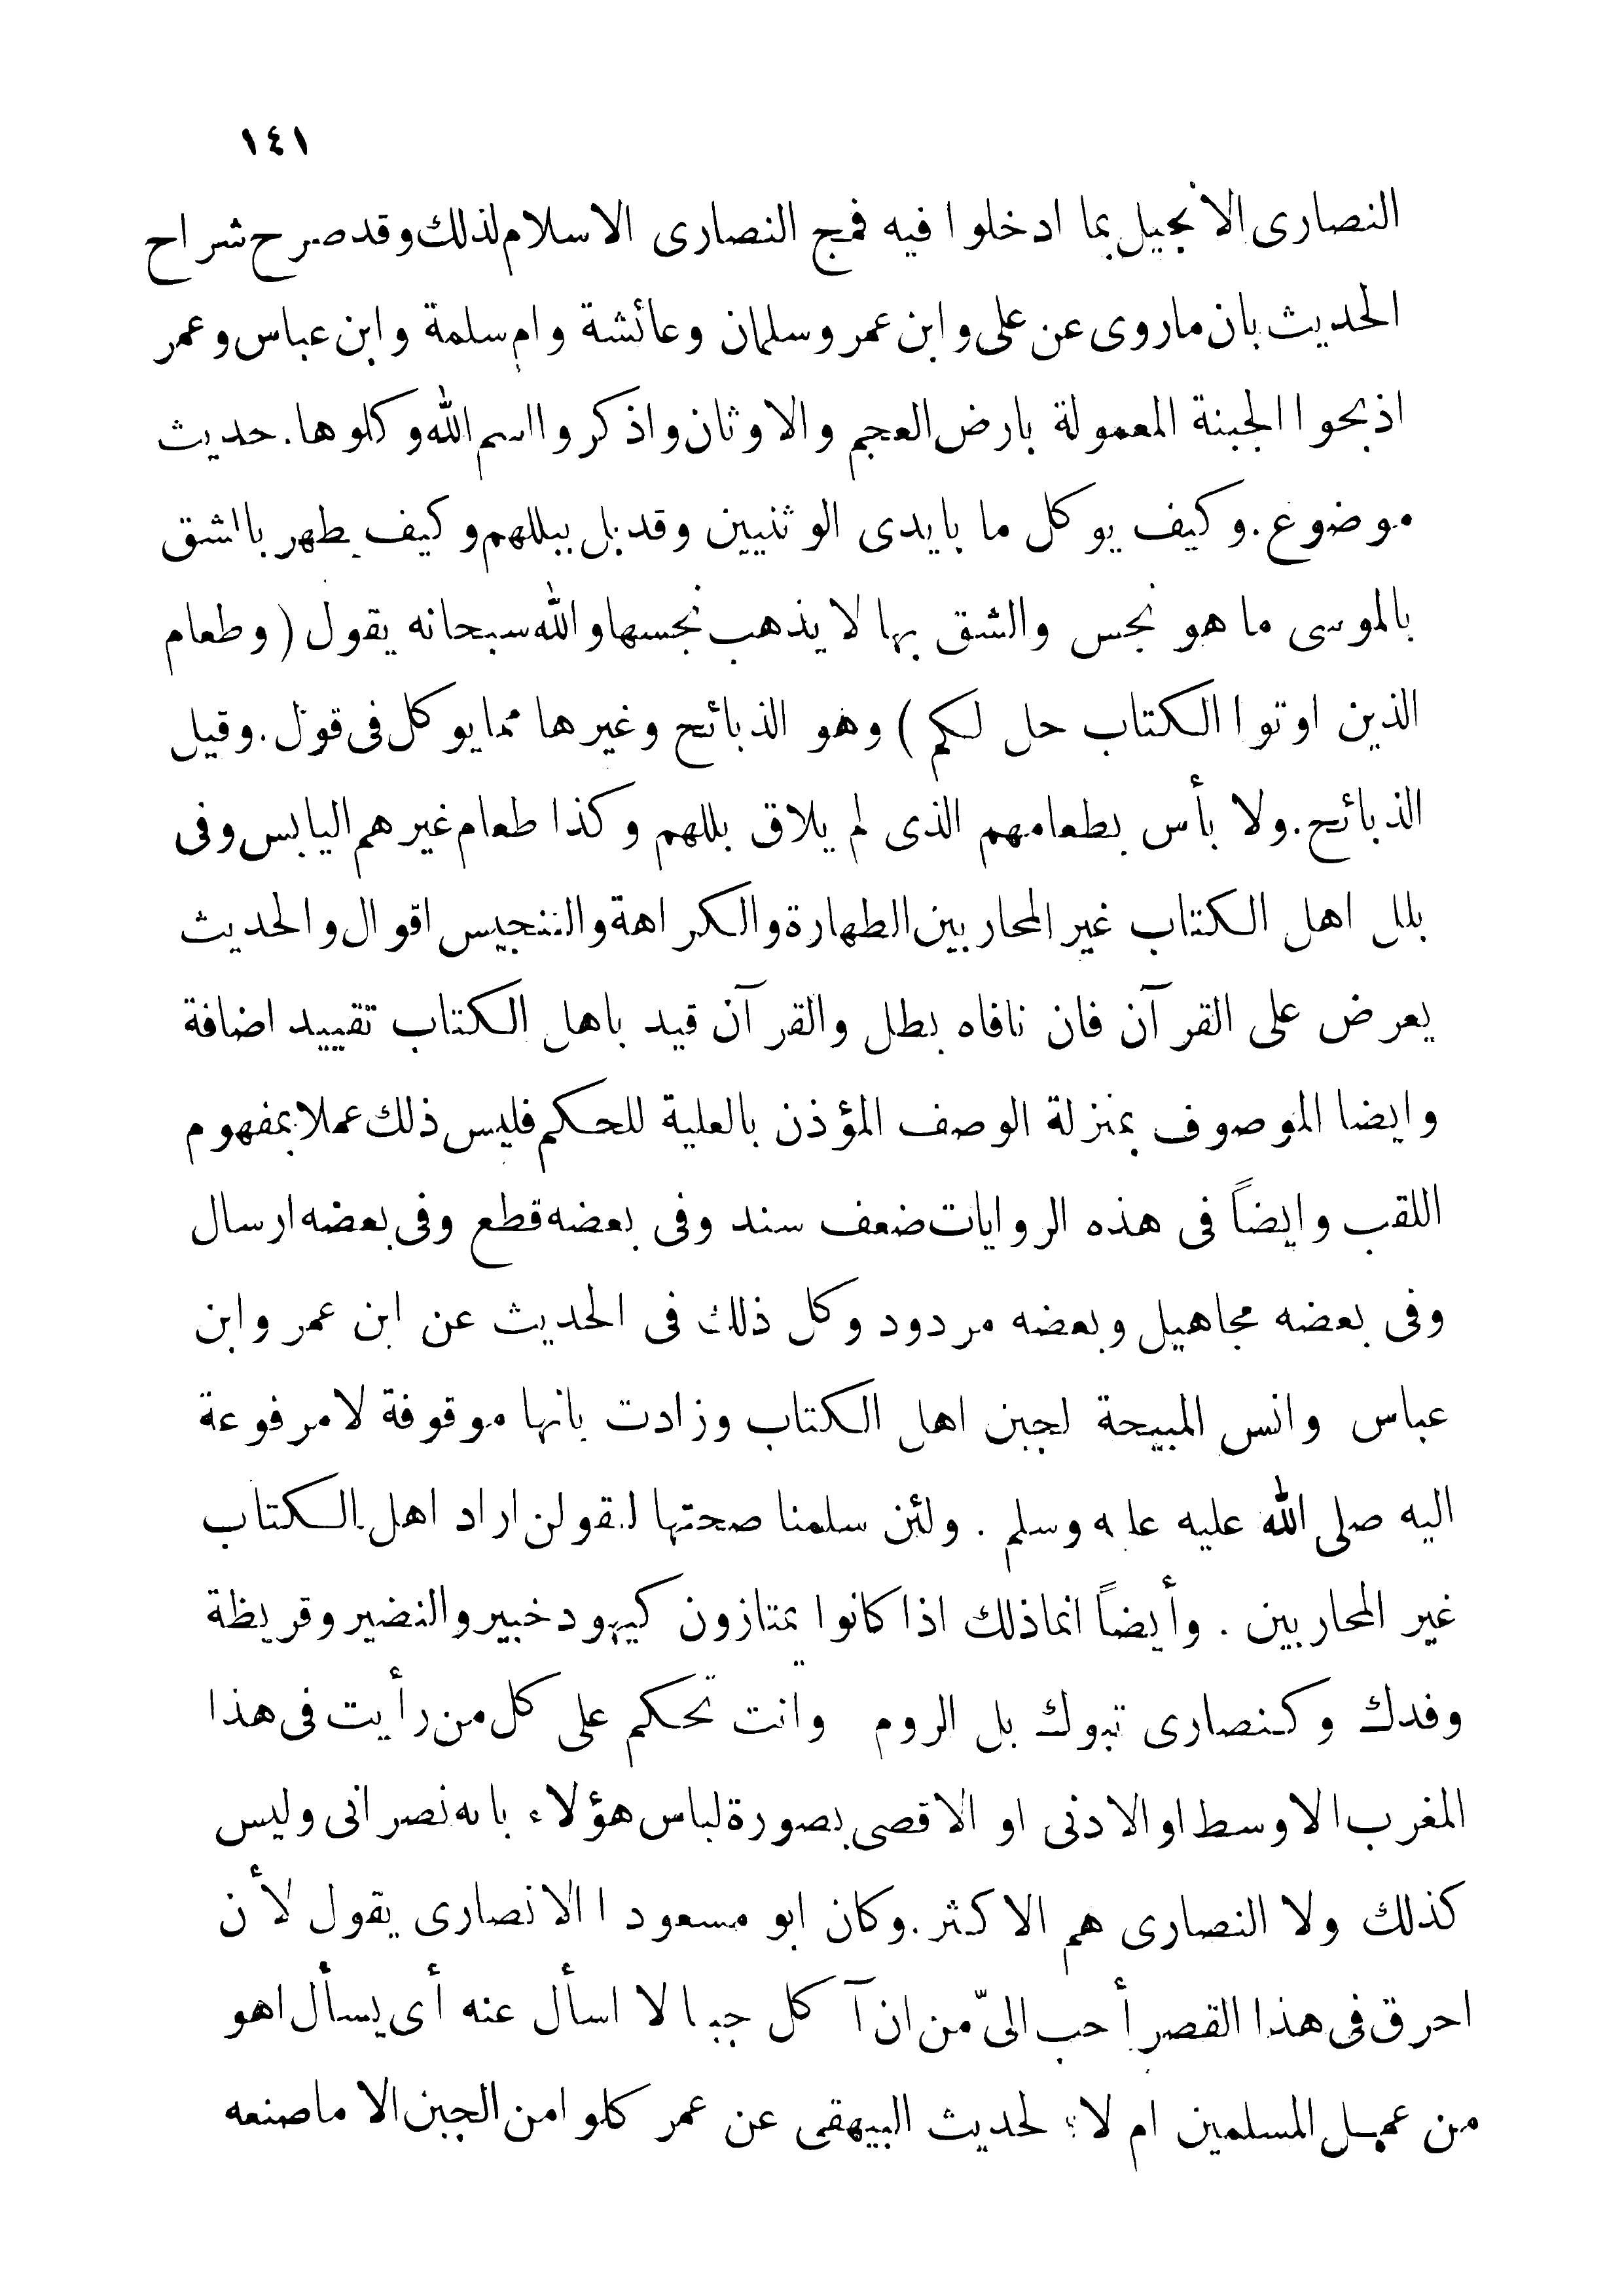 ١٤١
النصارى الانجيل بما ادخلوا فيه فمج النصارى الاسلام لذلك وقد صرح شراح
الحديث بان ماروى عن على وابن عمر وسلمان وعائشة وام سلمة وابن عباس وعمر
اذبحوا الجبنة المعمولة بارض العجم والاوثان واذكروا اسم الله وكلوها. حديث
موضوع. وكيف يوكل ما بايدى الوثنيين وقد بل ببللهم وكيف يطهر بالشق
بالموسى ما هو نجس والشق بها لا يذهب نجسها والله سبحانه يقول (وطعام
الذين اوتوا الكتاب حل لكم) وهو الذبائح وغيرها مما يوكل فى قول. وقيل
الذبائح. ولا بأس بطعامهم الذى لم يلاق بللهم وكذا طعام غيرهم اليابس وفى
بلل اهل الكتاب غير المحاربين الطهارة والكراهة والتنجيس اقوال والحديث
يعرض على القرآن فان نافاه بطل والقرآن قيد باهل الكتاب تقييد اضافة
وايضا الموصوف بمنزلة الوصف المؤذن بالعلية للحكم فليس ذلك عملا بمفهوم
اللقب وايضاً فى هذه الروايات ضعف سند وفى بعضه قطع وفى بعضه ارسال
وفى بعضه مجاهيل وبعضه مردود وكل ذلك فى الحديث عن ابن عمر وابن
عباس وانس المبيحة لجبن اهل الكتاب وزادت بانها موقوفة لا مرفوعة
اليه صلى الله عليه وسلم . ولئن سلمنا صحتها لنقولن اراد اهل الكتاب
غير المحاربين . وأيضاً انما ذلك اذا كانوا يمتازون كيهود خيبر والنضير وقريظة
وفدك وكنصارى تبوك بل الروم وانت تحكم على كل من رأيت فى هذا
المغرب الاوسط او الادنى او الاقصى بصورة لباس هؤلاء بانه نصرانى وليس
كذلك ولا النصارى هم الاكثر. وكان ابو مسعود الانصارى يقول لأن
احرق فى هذا القصر أحب الىّ من ان آكل جبنا لا اسأل عنه أى يسأل اهو
من عمل المسلمين ام لا؛ لحديث البيهقى عن عمر كلوا من الجبن الا ما صنعه